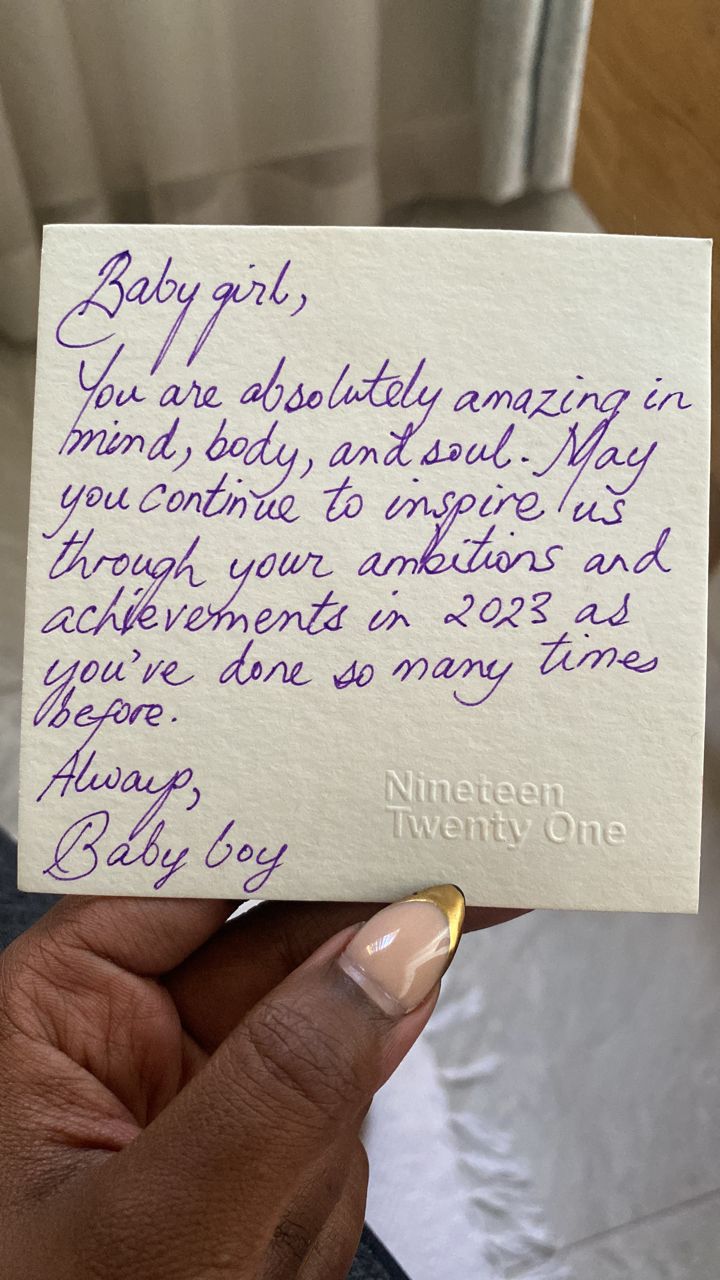 Baby girl,
You are absolutely amazing in
mind, body, and soul. May
you continue to inspire us
through your ambitions and
achievements in 2023 as
you've done so many times
before.
Always,
Baby boy
Nineteen
Twenty One